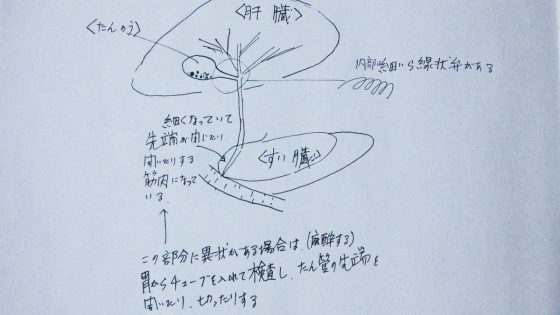 〈肝 臓〉
〈たんのう〉
内部細い線状弁がある
細くなっていて
先端が閉じたり
開いたりする
筋肉になって
いる
〈すい 臓〉
この部分に異状がある場合は、(麻酔する)
胃からチューブを入れて検査し、たん管の先端を
開いたり、切ったりする